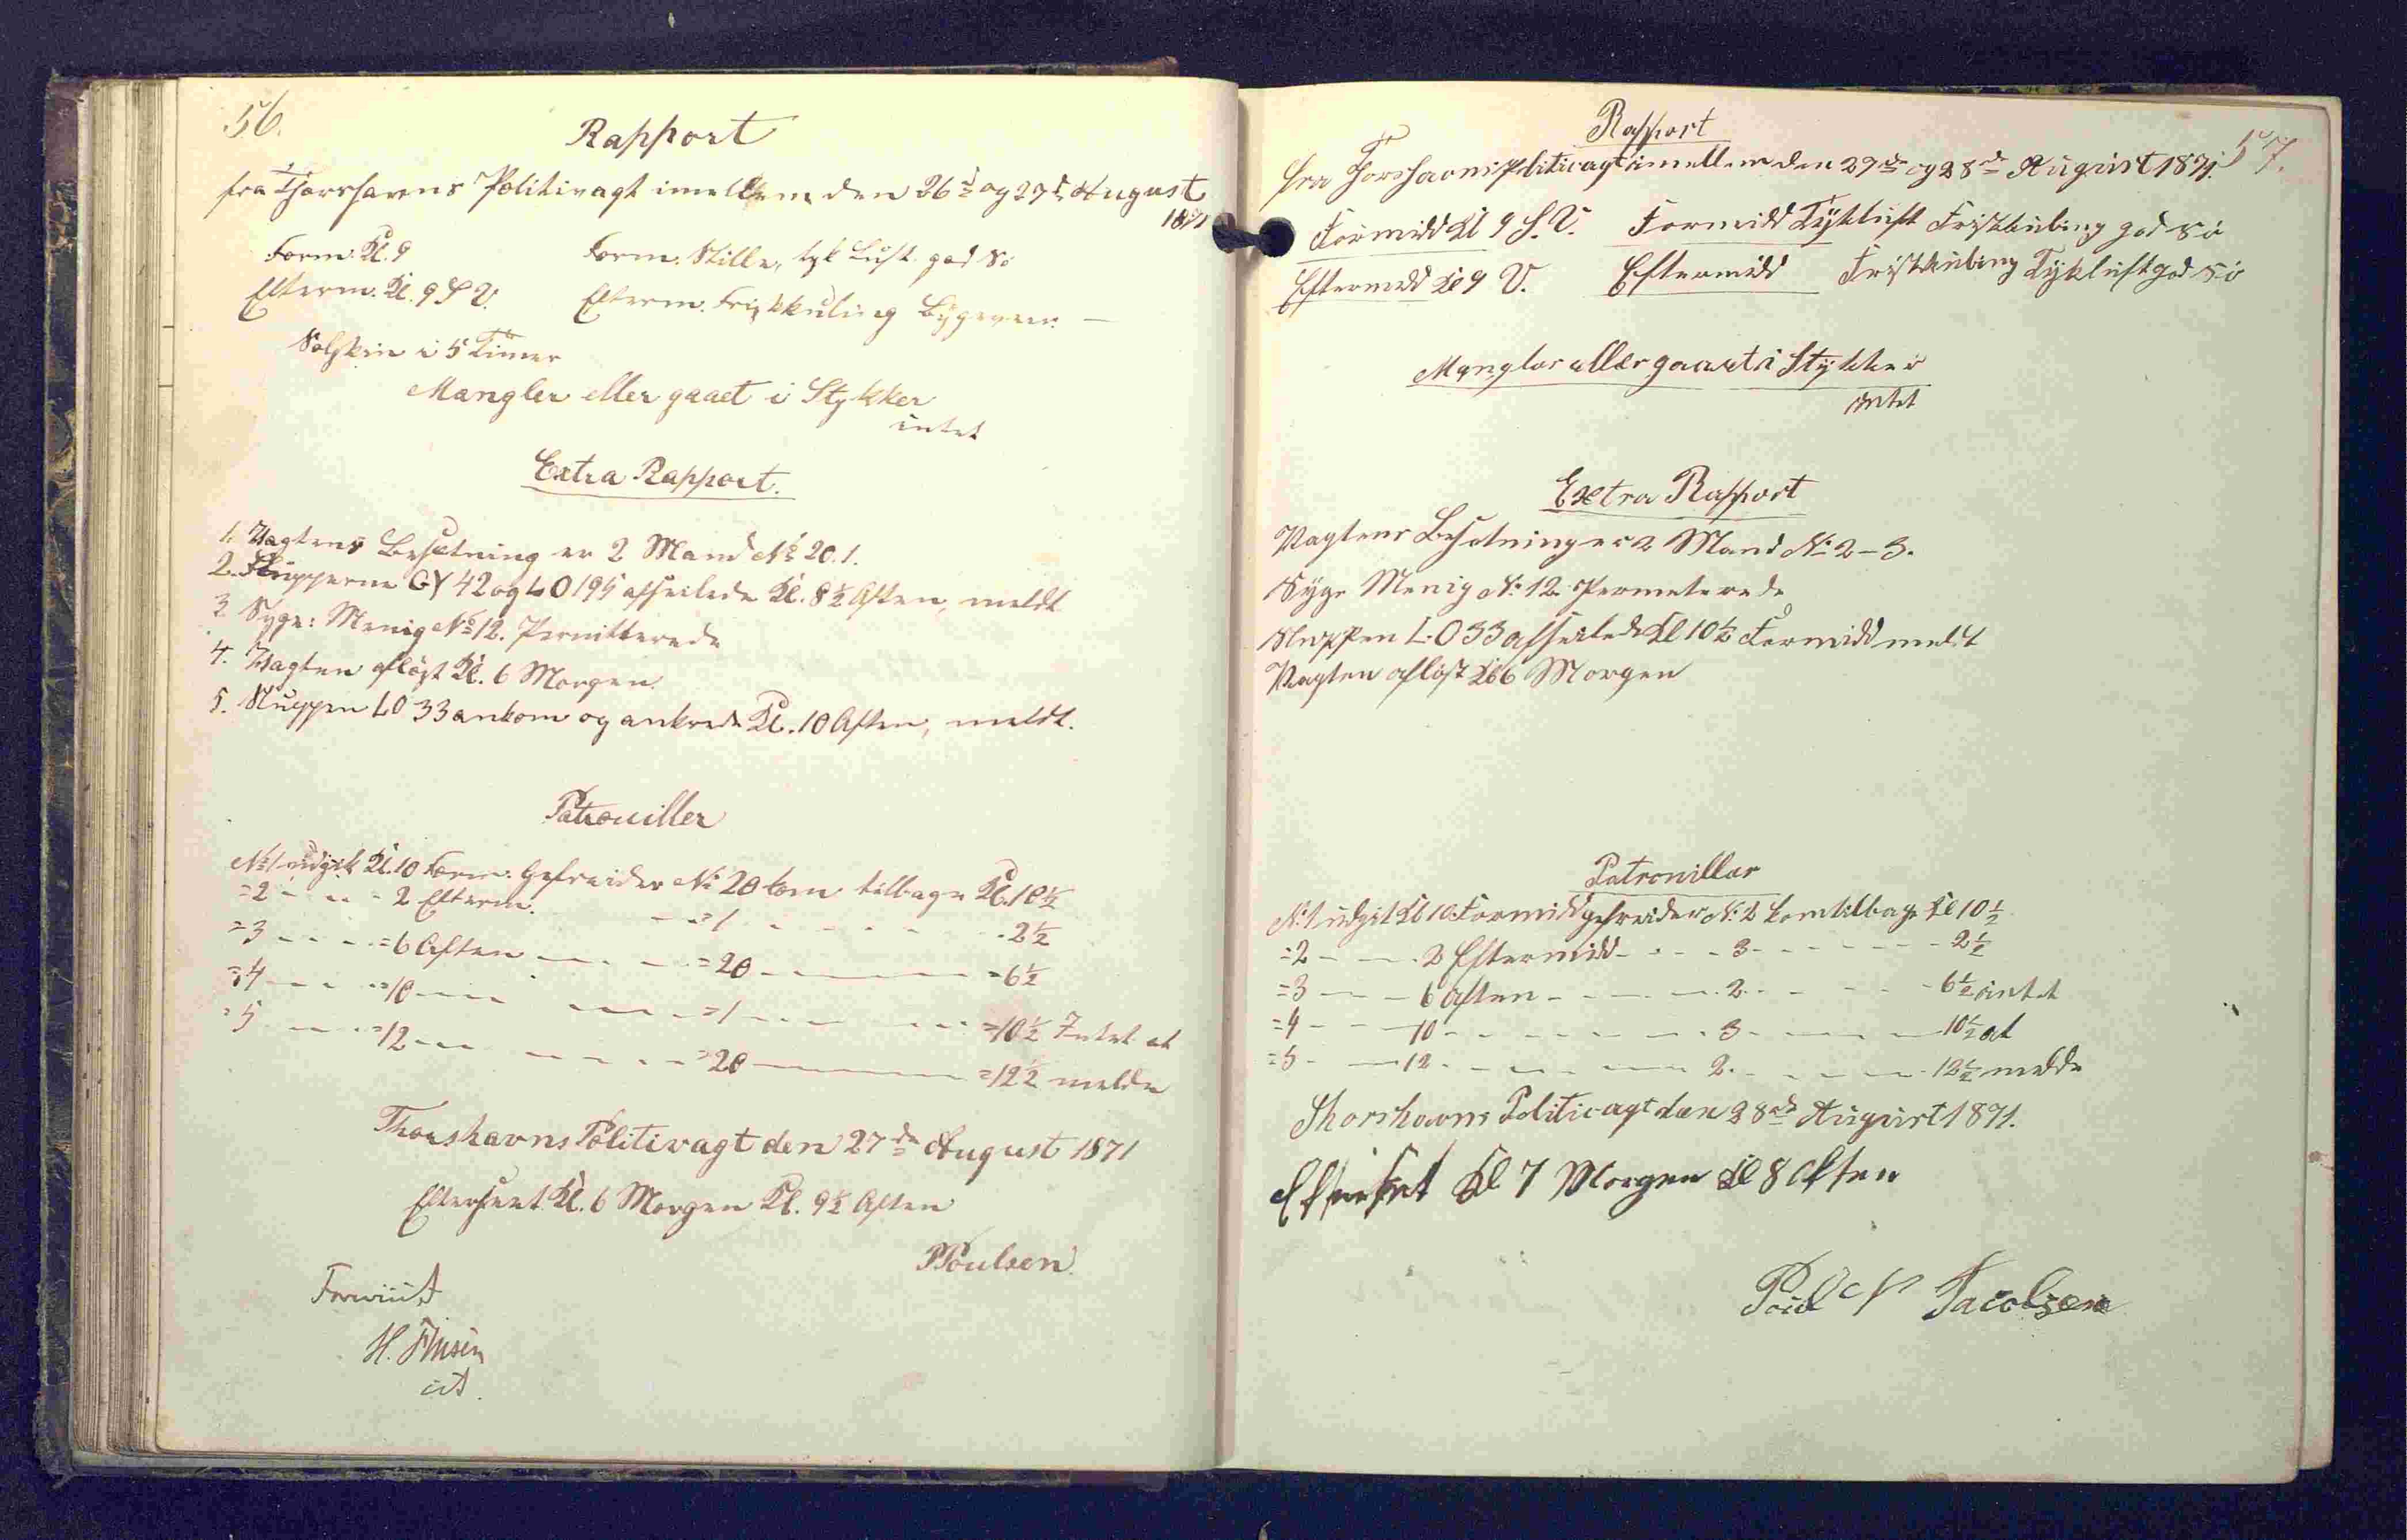 56.
Rapport
fra Thorshavns Politivagt imellem den 26d og 27d August
1871
Form. Kl. 9
Form. Stille, tyk Luft god Sö
Efterm. Kl. 9 S V.
Efterm. Friskkuling Bygeveir. —
Solskin i 5 Timer
Mangler eller gaaet i Stykker
intet
Extra Rapport.
1. Vagtens Besætning er 2 Mand No 20. 1.
2. Slupperne GY 42 og LO 195 afseilede Kl. 8½ Aften, meldt
3 Syge: Menig No 12. Permitterede
4. Vagten aflöst Kl. 6 Morgen.
5. Sluppen LO 33 ankom og ankrede Kl. 10 Aften, meldt.
Patrouiller
No 1 udgik Kl. 10 Form. Gefreider No 20 kom tilbage Kl. 10½
=2 - - - 2 Efterm. - - =1 - - - - - 2½
=3 - - - =6 Aften - - - =20 - - - =6½
=4 - - - =10 - - - - - =1 - - - =10½ Intet at
=5 - - - =12 - - - - - =20 - - - =12½ melde
Thorshavns Politivagt den 27de August 1871
Efterseet Kl. 6 Morgen Kl. 9½ Aften
PPoulsen
Foreviist
H. Finsen
cst.
Rapport
57.
fra Thorshavns Politivagt imellem den 27de og 28de August 1871.
Formidd Kl 9 S. V. Formidd Tykluft Friskkuling god Sö
Eftermidd Kl 9 V. Eftermidd Friskkuling Tykluft god Sö
Mangler eller gaaet i Stykker
intet
Extra Rapport
Vagtens Besetning er 2 Mand No 2 - 3.
Syge Menig No 12 Permeterede
Sluppen L. O 33 afseilede Kl 10½ Formidd meldt
Vagten aflöst Kl 6 Morgen
Patrouiller
No 1 udgik Kl 10 Formidd gefreider No 2 kom tilbage Kl 10½
=2 - - - 2 Eftermidd - - - 3 - - - - 2½
=3 - - - 6 Aften - - - 2 - - - - 6½ intet
=4 - - - 10 - - - - - 3 - - - 10½ at
=5 - - - 12 - - - - - 2 - - - 12½ melde
Thorshavns Politivagt den 28de August 1871.
Efterset Kl 7 Morgen Kl 8 Aften
Poul Jacobsen